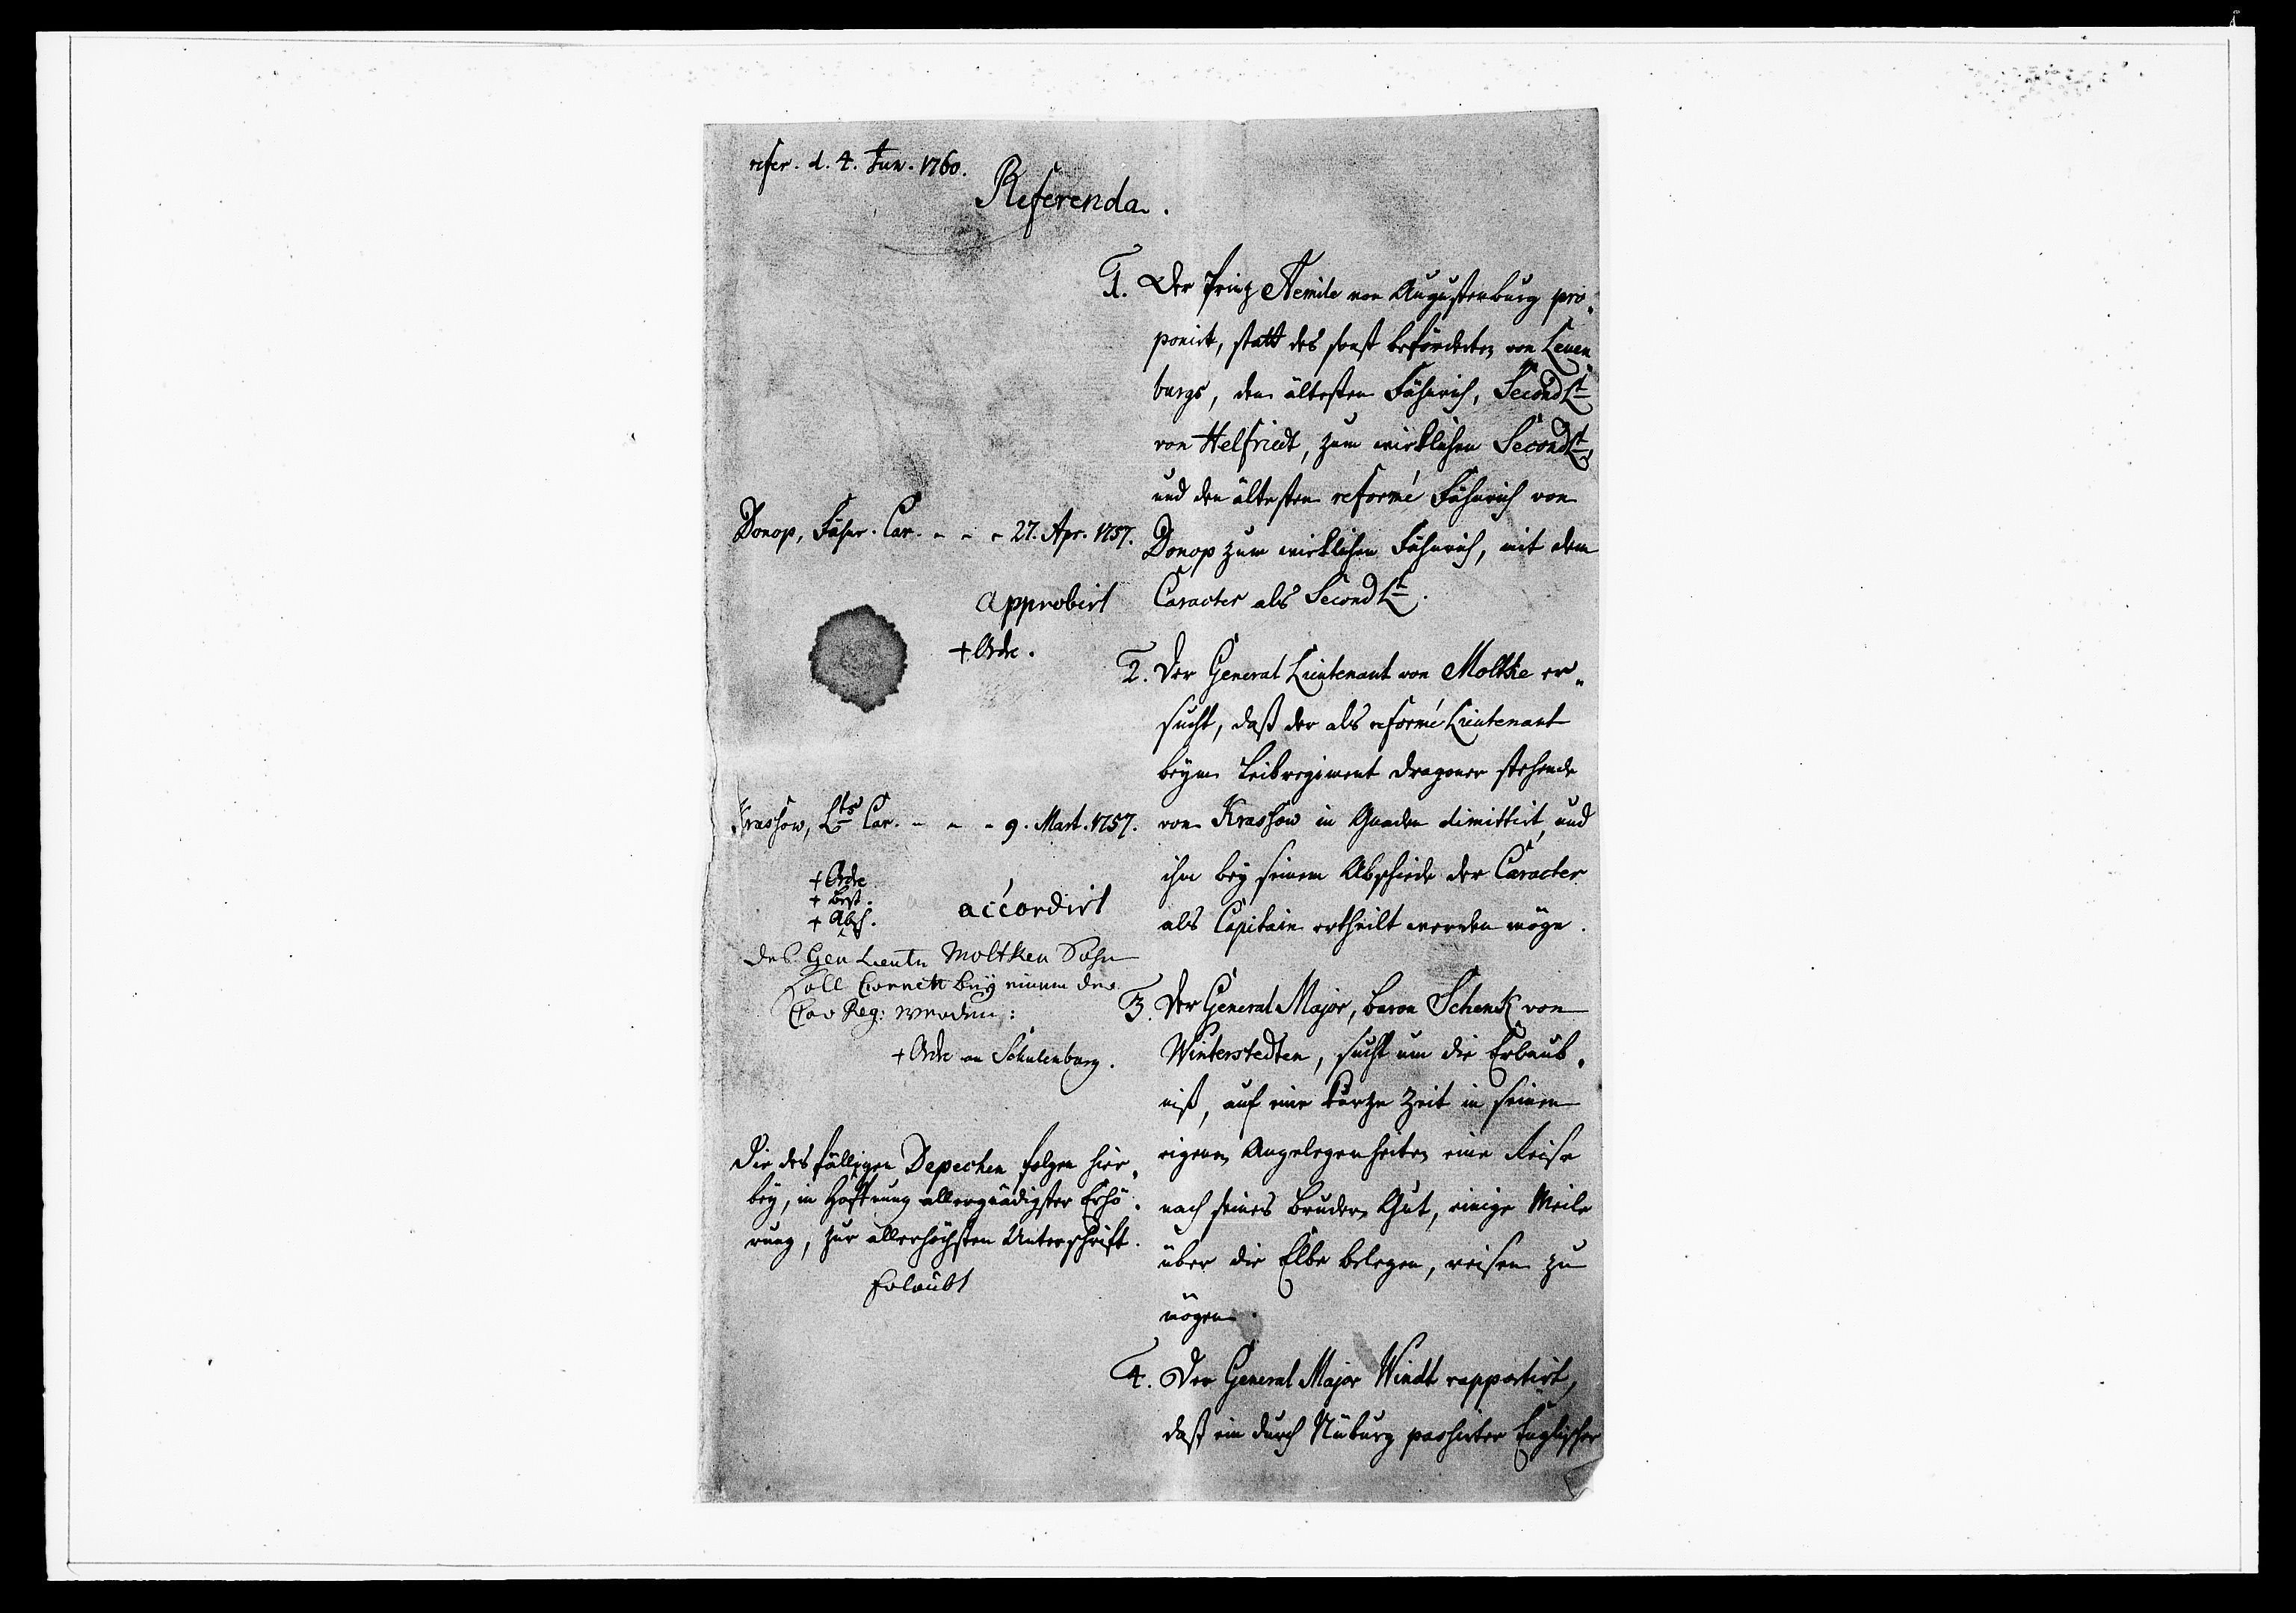 refer. d. 4. Jun. 1760.
Referenda.
1. Der Prinz Aemile von Augustenburg pro-
ponirt, statt des sonst beförderten von Leuen-
burgs, den ältesten Fähnrich, Second Lt.
von Helfriedt, zum wirklichen Second Lt.,
und den ältesten reformé Fähnrich von
Donop zum wirklichen Fähnrich, mit dem
Caracter als Second Lt.
Donop, Fähnr. Car. - - - 27. Apr. 1757.
approbirt
+ Ordre.
2. Der General Lieutenant von Moltke er-
sucht, daß der als reformé Lieutenant
beym Leibregiment Dragoner stehende
von Krassow in Gnaden dimittirt, und
ihm bey seinem Abschiede der Caracter
als Capitain ertheilt werden möge.
Krassow, Lts Car. - - - 9. Mart. 1757.
+ Ordre
+ Best.
+ Absch.
accordirt
des Gen Lieutn Moltken Sohn
soll Cornett bey einem der
Cav Reg: werden:
+ Ordre an Schulenburg.
3. Der General Major, Baron Schenk von
Winterstedten, sucht um die Erlaub-
niß, auf eine kurze Zeit in seinen
eigenen Angelegenheiten eine Reise
nach seines Bruders Gut, einige Meile
über die Elbe belegen, reisen zu
mögen.
Die desfälligen Depechen folgen hier-
bey, in Hoffnung allergnädigster Erhö-
rung, zur allerhöchsten Unterschrift.
Erlaubt
4. Der General Major Windt rapportirt,
daß ein durch Nüburg passirter Englischer